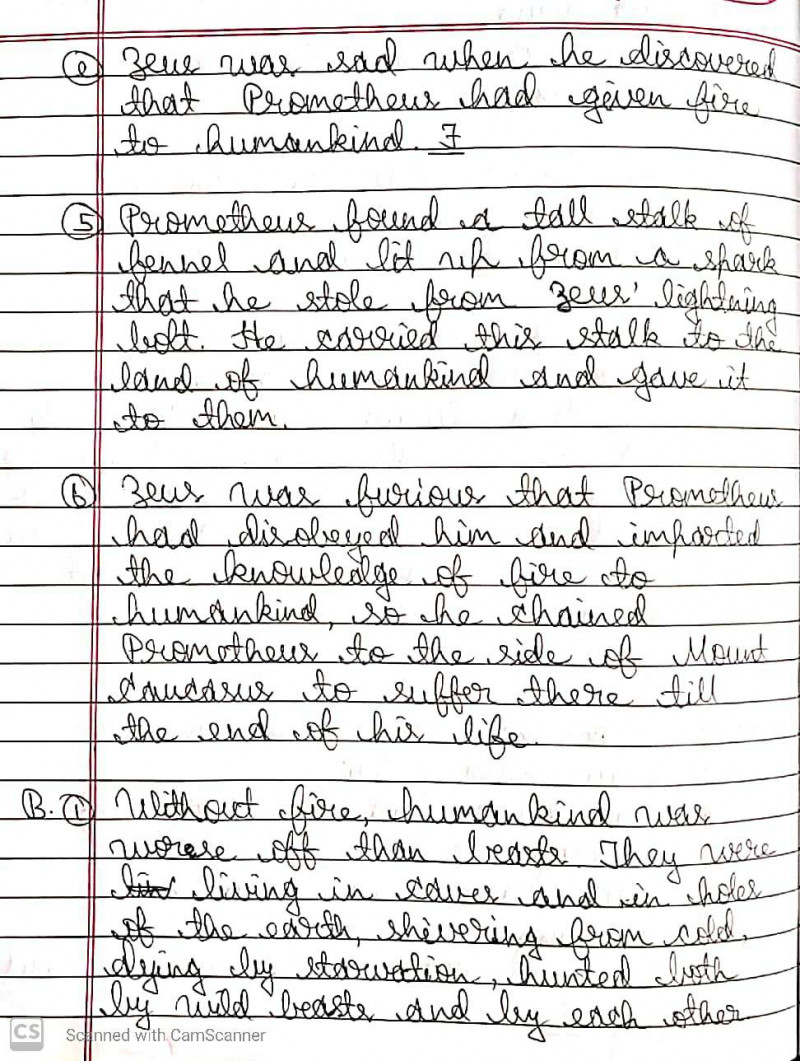 (e) Zeus was sad when he discovered
that Prometheus had given fire
to humankind. F
(5) Prometheus found a tall stalk of
fennel and lit up from a spark
that he stole from Zeus' lightning
bolt. He carried this stalk to the
land of humankind and gave it
to them.
(6) Zeus was furious that Prometheus
had disobeyed him and imparted
the knowledge of fire to
humankind, so he chained
Prometheus to the side of Mount
Caucasus to suffer there till
the end of his life.
B. (1) Without fire, humankind was
worse off than beasts. They were
living in caves and in holes
of the earth, shivering from cold,
dying by starvation, hunted both
by wild beasts and by each other
CS Scanned with CamScanner